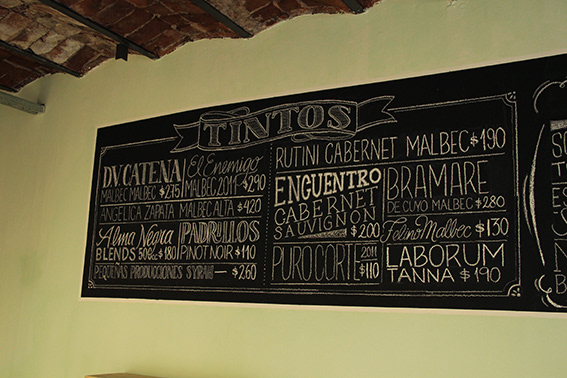 TINTOS
D.V. CATENA
MALBEC MALBEC $275
El Enemigo
MALBEC 2011 $290
ANGELICA ZAPATA MALBEC ALTA $420
Alma Negra
BLENDS $180
PADRILLOS
PINOT NOIR $110
PEQUEÑAS PRODUCCIONES SYRAH $260
RUTINI CABERNET MALBEC $190
ENCUENTRO
CABERNET
SAUVIGNON
$200
BRAMARE
DE CUYO MALBEC $280
PURO CORTE 2011
$110
Felino Malbec $130
LABORUM
TANNA $190